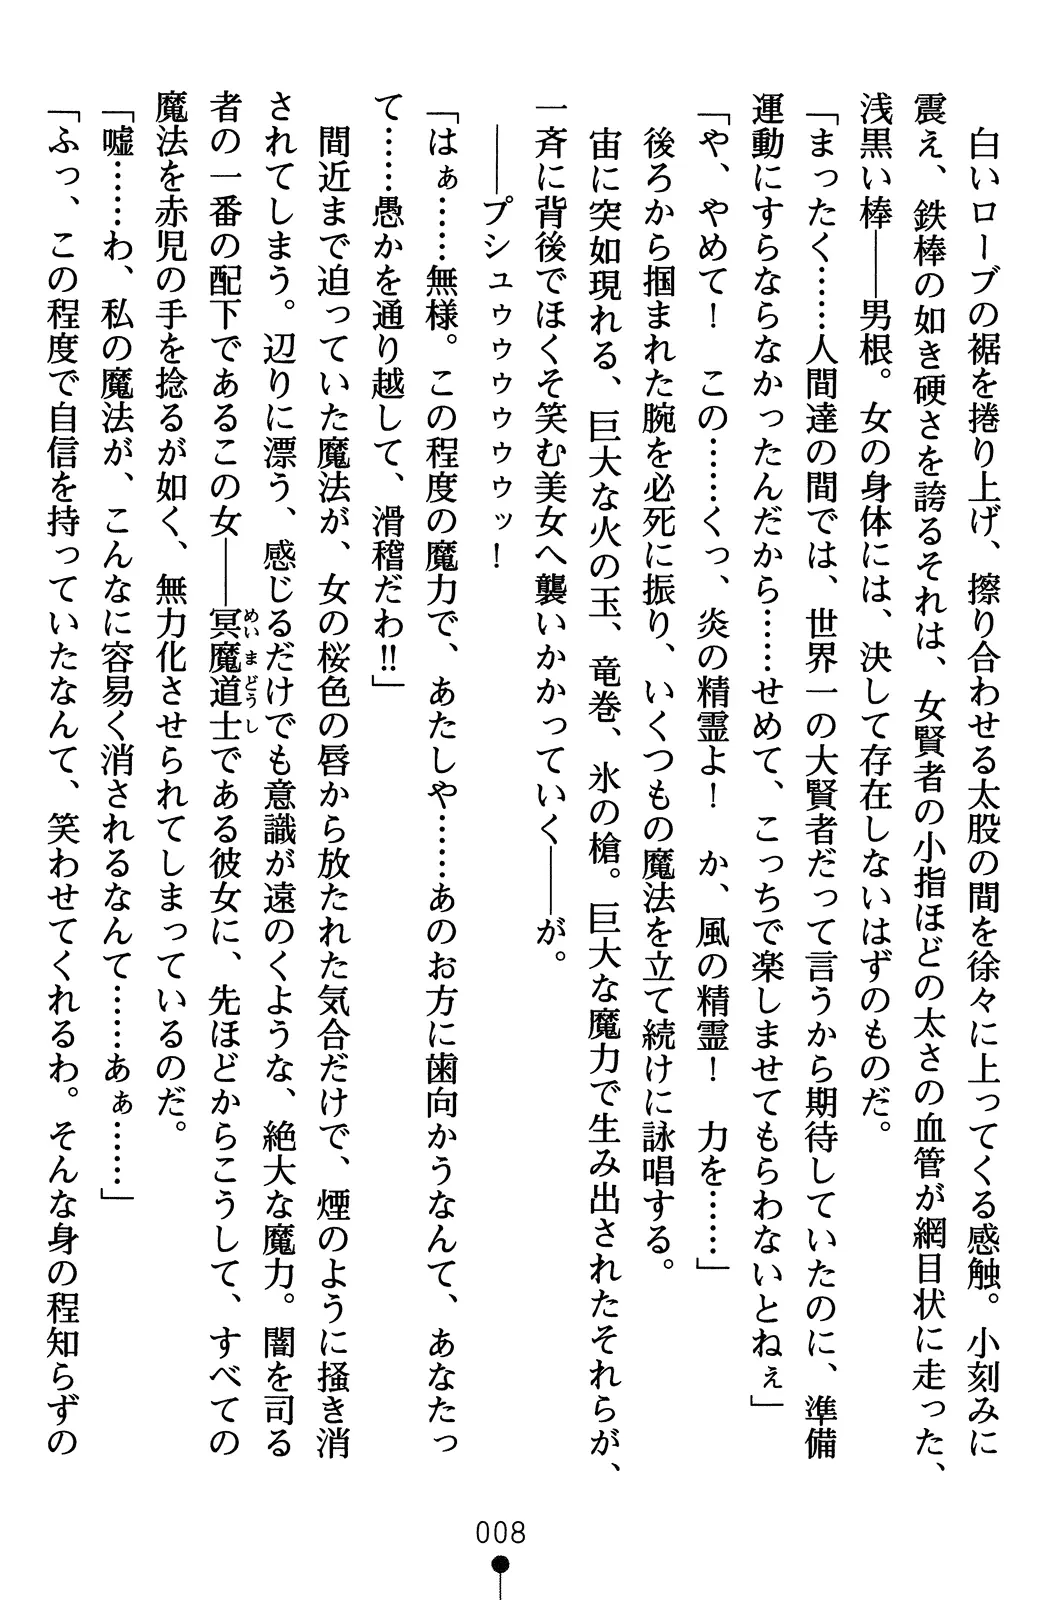 白いローブの裾を捲り上げ、擦り合わせる太股の間を徐々に上ってくる感触。小刻みに
震え、鉄棒の如き硬さを誇るそれは、女賢者の小指ほどの太さの血管が網目状に走った、
浅黒い棒――男根。女の身体には、決して存在しないはずのものだ。
「まったく……人間達の間では、世界一の大賢者だって言うから期待していたのに、準備
運動にすらならなかったんだから……せめて、こっちで楽しませてもらわないとねぇ」
「や、やめて！　この……くっ、炎の精霊よ！　か、風の精霊！　力を……」
後ろから掴まれた腕を必死に振り、いくつもの魔法を立て続けに詠唱する。
宙に突如現れる、巨大な火の玉、竜巻、氷の槍。巨大な魔力で生み出されたそれらが、
一斉に背後でほくそ笑む美女へ襲いかかっていく――が。
――プシュゥゥゥゥゥッ！
「はぁ……無様。この程度の魔力で、あたしや……あのお方に歯向かうなんて、あなたっ
て……愚かを通り越して、滑稽だわ!!」
間近まで迫っていた魔法が、女の桜色の唇から放たれた気合だけで、煙のように掻き消
されてしまう。辺りに漂う、感じるだけでも意識が遠のくような、絶大な魔力。闇を司る
者の一番の配下であるこの女――冥魔道士である彼女に、先ほどからこうして、すべての
めいまどうし
魔法を赤児の手を捻るが如く、無力化させられてしまっているのだ。
「嘘……わ、私の魔法が、こんなに容易く消されるなんて……あぁ……」
「ふっ、この程度で自信を持っていたなんて、笑わせてくれるわ。そんな身の程知らずの
008